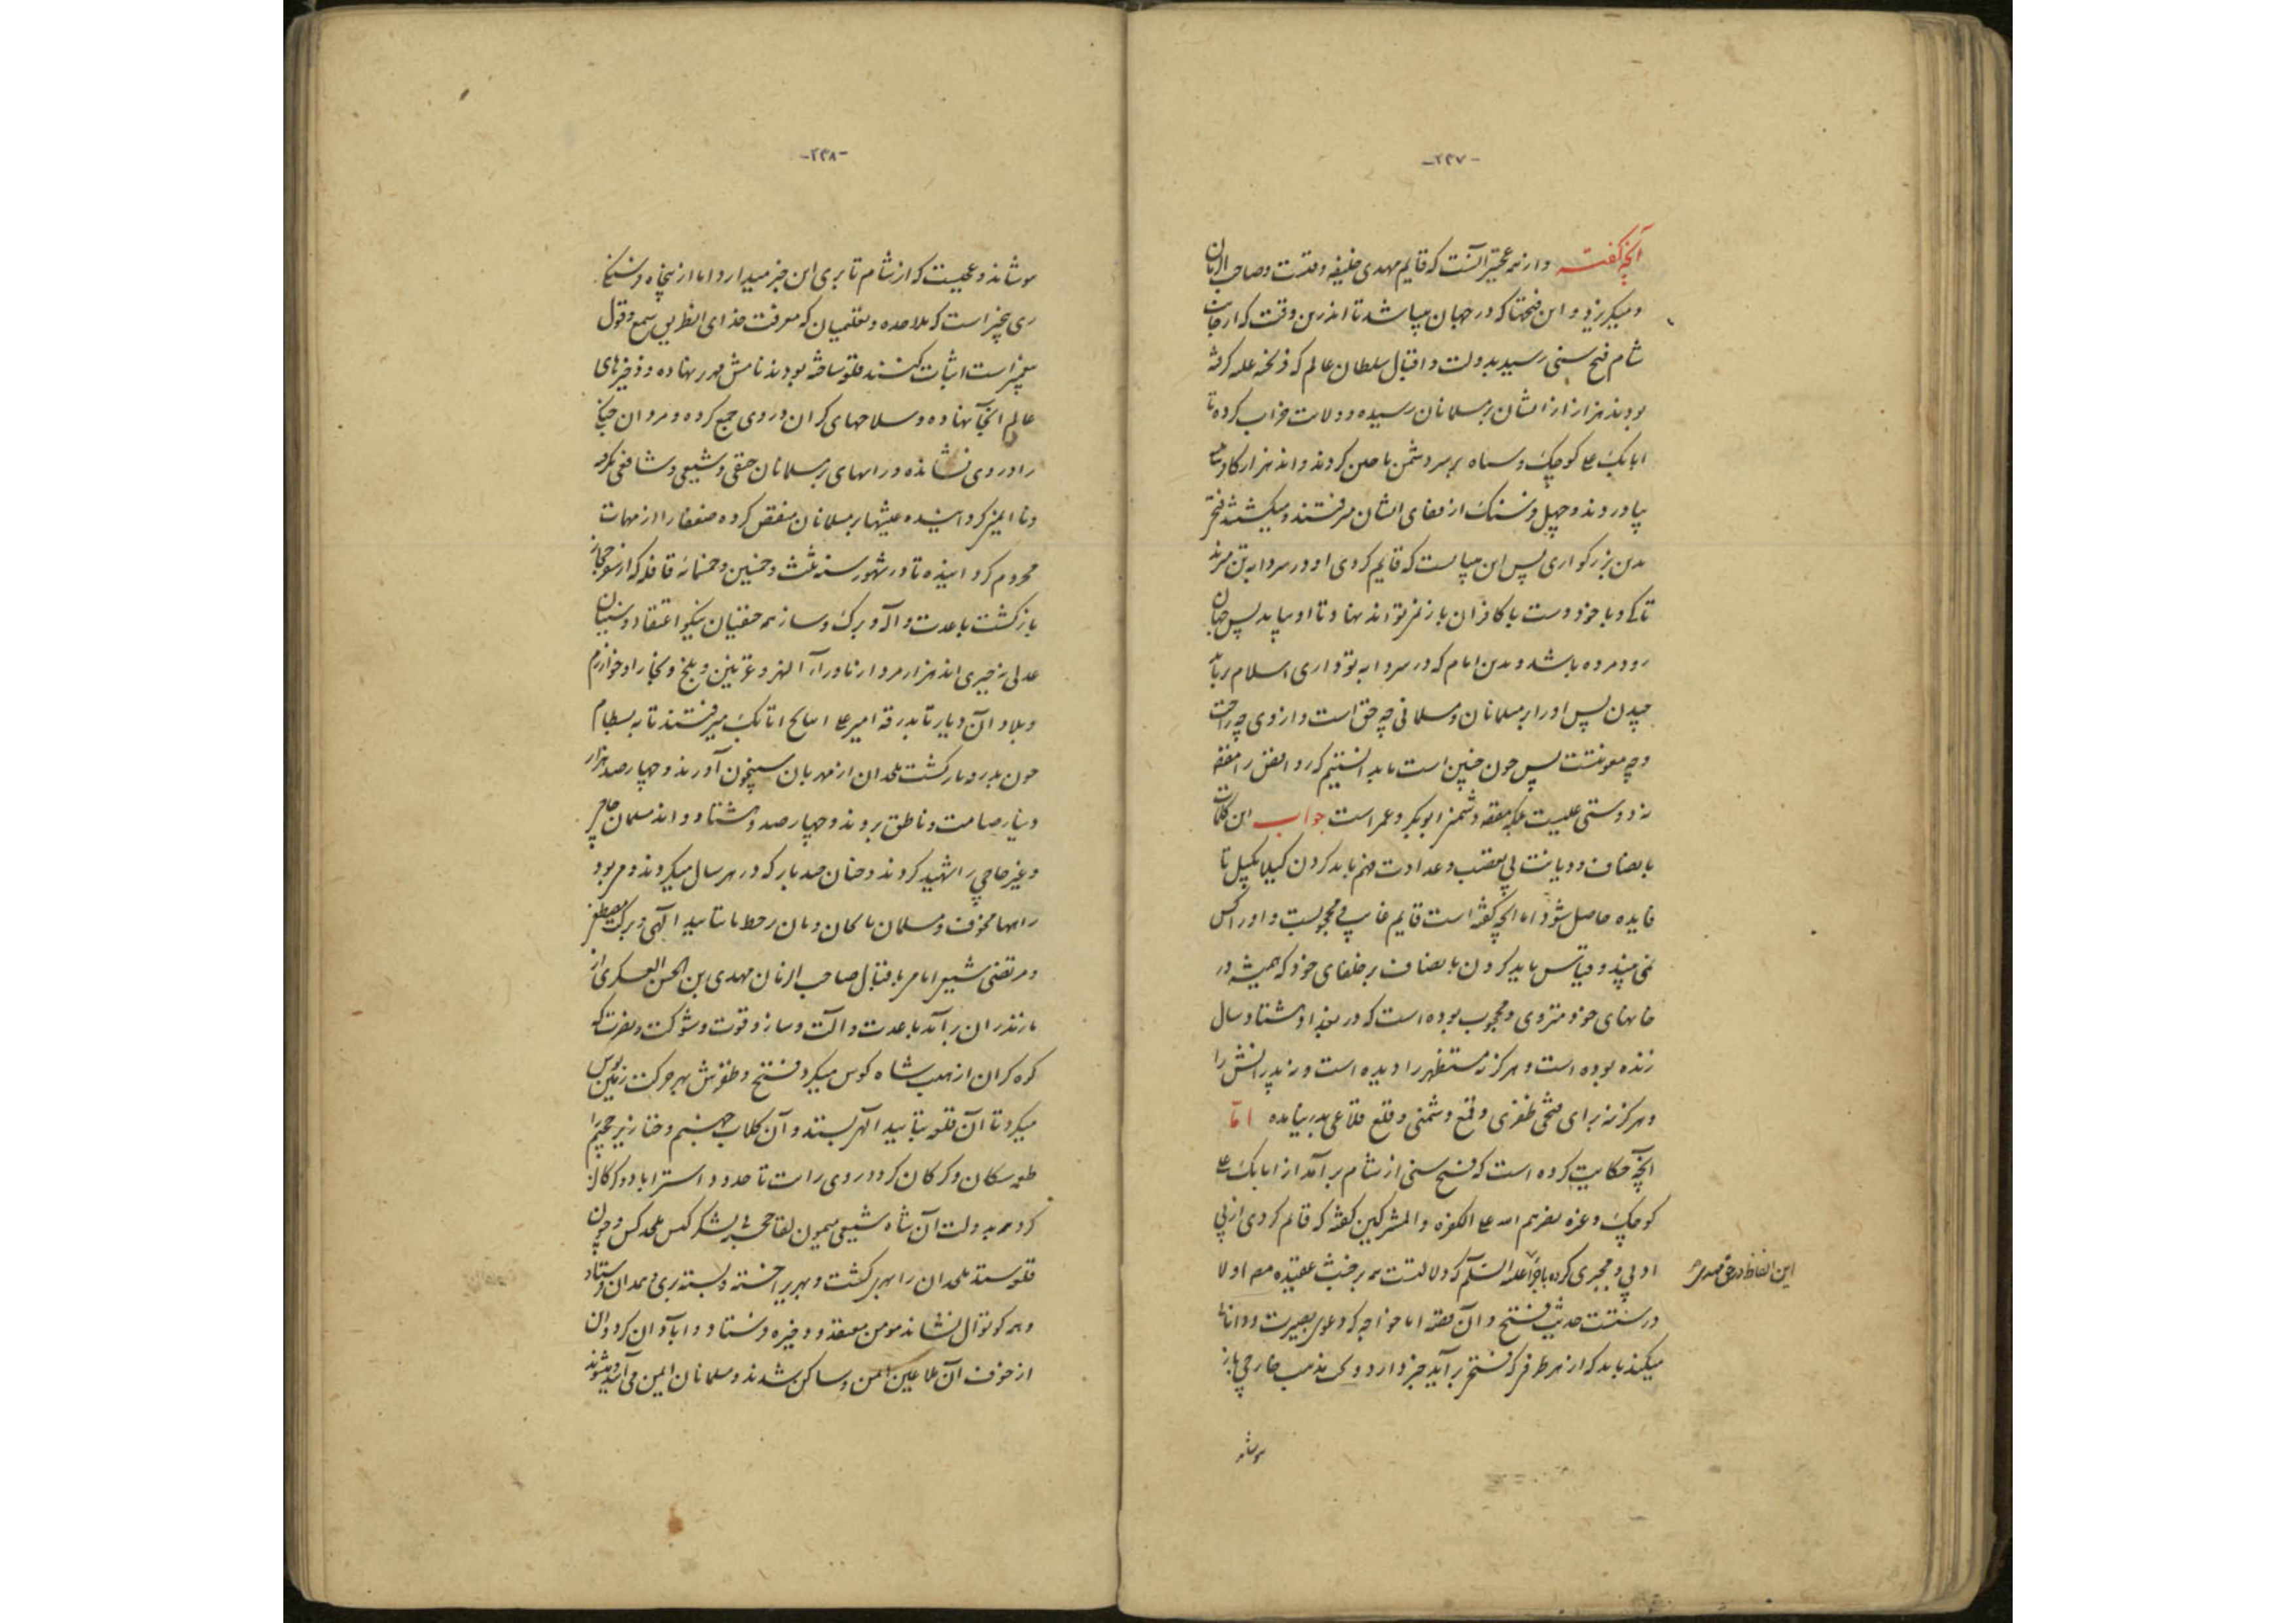 -۲۳۷-
آنچه گفته و از همه عجبتر آنست که قایم مهدی خلیفه وقتست و صاحب الزمان
و میگریزد و این فتحها که در جهان میباشد تا اندرین وقت که از جانب
شام فتح سنی رسید بدولت و اقبال سلطان عالم که فرنجه غلبه کرفته
بودند هزار از ایشان بر مسلمانان رسیده و ولایت خراب کرده تا
اتابک علی کوچک و سپاه بر سر دشمن تاختن کردند و اند هزار گاو
بیاوردند و چهل فرسنگ از قفای ایشان میرفتند و میکشتند فتحی
بدین بزرکواری پس این میبایست که قایم کردی او در سردابه تن میزند
تا کی و با خود دست با کافران باز نمیتواند نهاد تا او بیاید پس جهان
رود مرده باشد و بدین امام که در سردابه تو داری اسلام بر باید
چیدن پس او را بر مسلمانان و مسلمانی چه حق است و از وی چه راحت
و چه معونتست پس چون چنین است بباید دانستن که روافض را مقصود
نه دوستی علیست بلکه مقصود دشمنی ابوبکر و عمر است جواب این کلمات
بانصاف و دیانت بی تعصب و عداوت فهم باید کردن کیلا بکیل تا
فایده حاصل شود اما آنچه گفته است قایم غایب و محجوبست و او را کس
نمی بیند و قیاس باید کردن بانصاف بر خلفای خود که همیشه در
خانهای خود منزوی و محجوب بوده است که در بغداد هشتاد سال
زنده بوده است و هرگز نه مستظهر را دیده است و نه پدرانش را
و هرگز نه برای فتحی ظفری و قمع دشمنی و قلع قلاعی بدر نیامده اما
آنچه حکایت کرده است که فتح سنی از شام برآمد از اتابک علی
کوچک و غزه نصرهم الله علی الکفره و المشرکین گفته که قائم کردی از بی
ادبی و مجبری کرده با خواجه علیه السلام که دلالتست بر خبث عقیده مصنف اولا
درستست حدیث فتح و آن قصه اما خواجه که دعوی بصیرت و دانائی
میکند باید که از هر طرفی که فتحی برآید خبر دارد ولی مذهب خارجی باز
این الفاظ در حق مهدی
پوشاند
-۲۳۸-
پوشاند و عجبست که از شام تا بری این خبر میدارد اما از پنجاه فرسنگی
ری بیخبر است که ملاحده و تعلیمیان که معرفت خدای از طریق سمع و قول
پیغمبر است اثبات کنند قلعه ساخته بودند نامش مهرین نهاده و ذخیرهای
عالم آنجا نهاده و سلاحهای گران در وی جمع کرده و مردان جنگی
را در وی نشانده و راههای بر مسلمانان حنفی و شیعی و شافعی بکرده
و ناایمن کردانیده عیشها بر مسلمانان منغص کرده ضعفا را از مهمات
محروم کردانیده تا در شهور سنه ثلث و خمسین و خمسمائه قافله که از سفر حجاز
بازکشت با عدت و آلت و برگ و ساز همه حنفیان نیکو اعتقاد و سنیان
عدلی مذهب اند هزار مرد از ماوراء النهر و غزنین و بلخ و بخارا و خوارزم
و بلاد آن دیار تا بدرقه امیر علی اتابک میرفتند تا به بسطام
چون بدرقه بازکشت ملحدان از مهرین شبیخون آوردند و چهار صد هزار
دینار صامت و ناطق بردند و چهار صد و هشتاد و اند مسلمان حاجی
و غیر حاجی را شهید کردند و چنان صد بار که در هر سال میکردند و مر بود
راهها مخوف و مسلمانان بجان و نان در خطر تا بتایید الهی و برکت مصطفی
و مرتضی شیعی امامی باقبال صاحب الزمان مهدی بن الحسن العسکری از
مازندران برآمد با عدت و آلت و ساز و قوت و شوکت و نصرت که
کوه گران از هیبت شاه کوس میکرد و فتح و ظفرش بهر حرکت زمین بوس
میکرد تا آن قلعه بتایید الهی بستد و آن کلاب جهنم و خنازیر جحیم را
طعمه سگان و گرگان کرد و روی راست تا حدود استراباد و گرگان
کرد همه بدولت آن شاه شیعی میمون لقا خجسته لشکر کش ملحد کش و چون
قلعه بستد ملحدان را بهری بکشت و بهری را خسته و بسته بری و همدان فرستاد
و هم کوتوال نشاند مومن معتقد و ذخیره فرستاد و آبادان کرد و آن
از خوف آن ملاعین ایمن و ساکن شدند و مسلمانان ایمن می آیند و میشوند